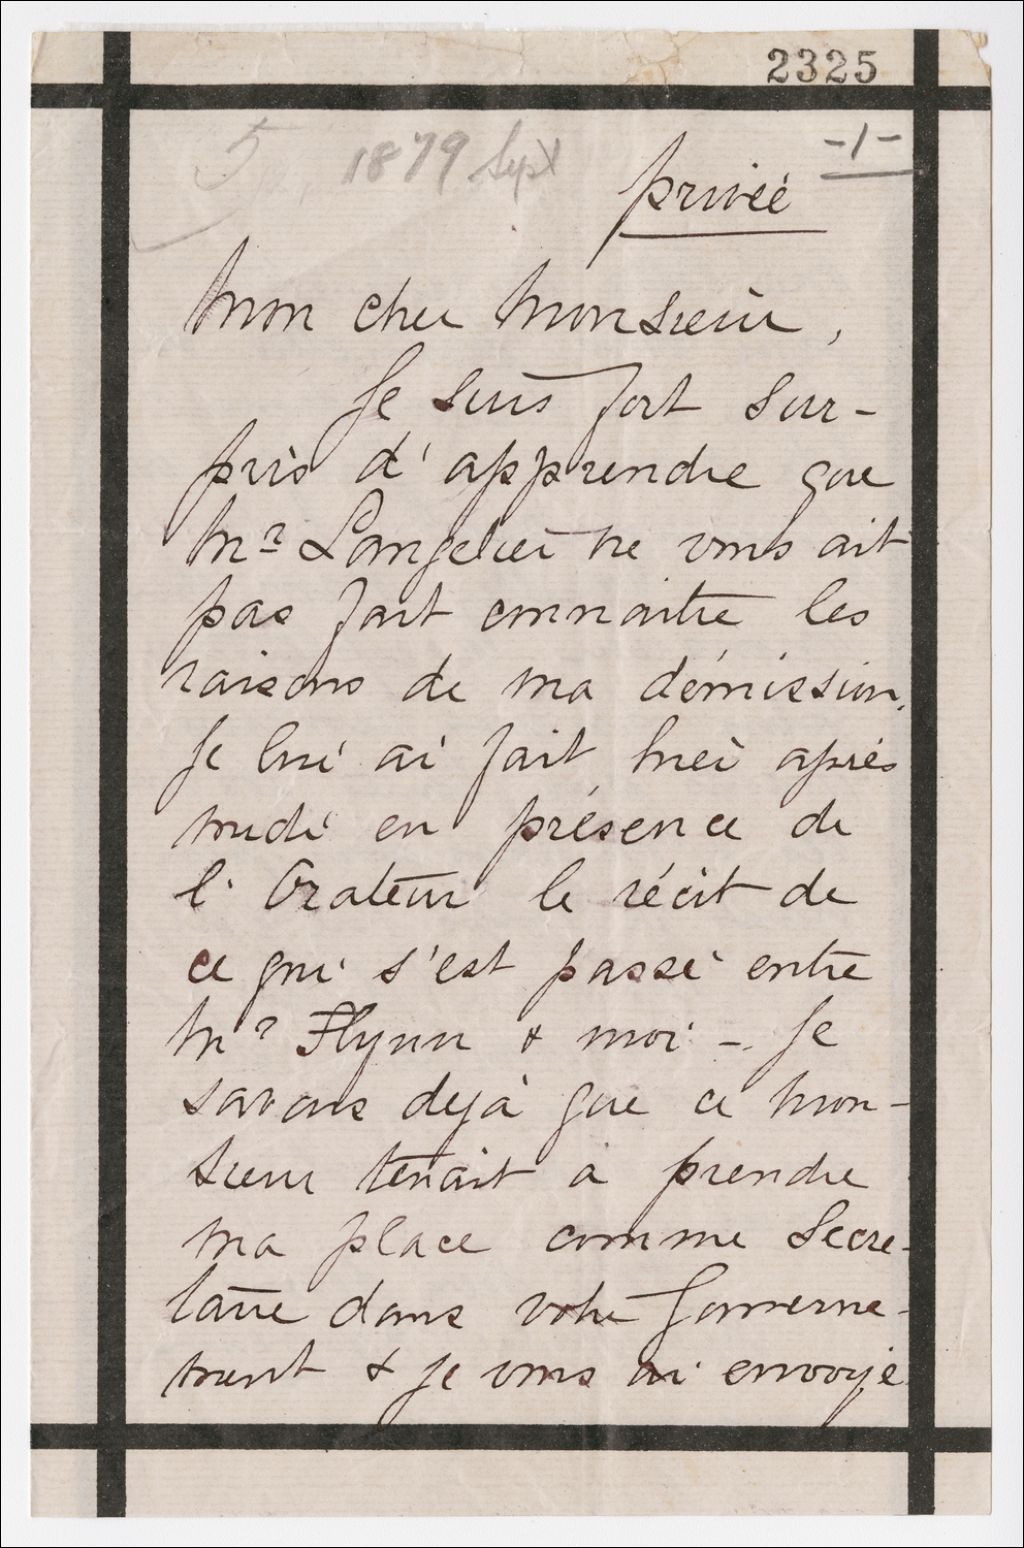 2325
-1-
5 1879 Sept
privée
Mon cher Monsieur,
Je suis fort sur-
pris d'apprendre que
Mr Langelier ne vous ait
pas fait connaitre les
raisons de ma démission.
Je lui ai fait hier après
midi en présence de
l'Orateur le récit de
ce qui s'est passé entre
Mr Flynn & moi - Je
savais dejà que ce Mon-
sieur tenait à prendre
ma place comme Secré-
taire dans votre Gouverne-
ment & je vous ai envoyé